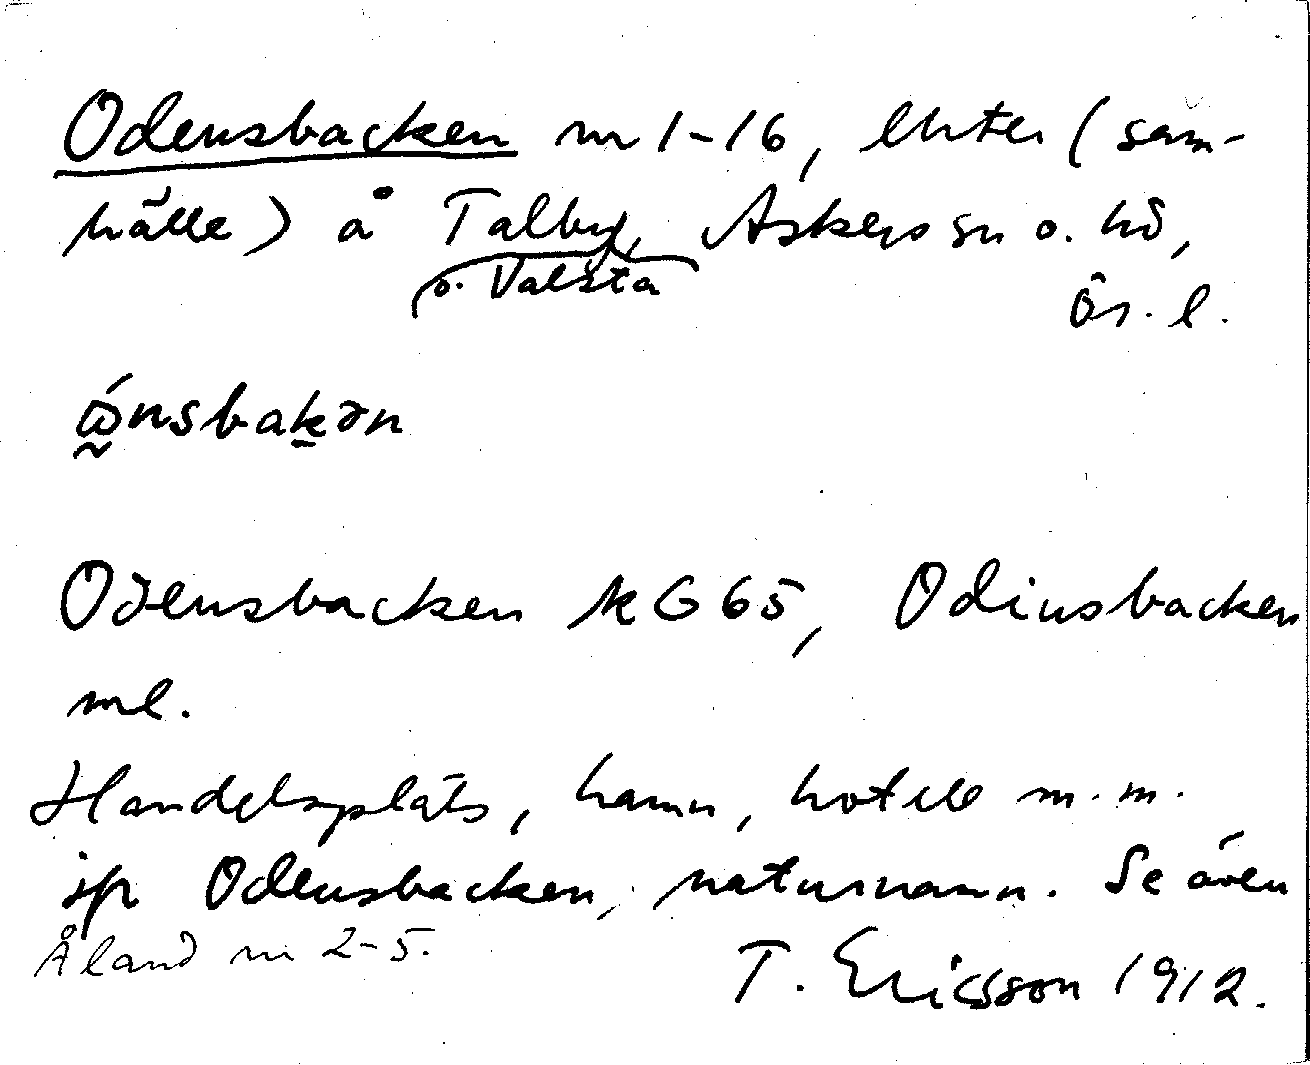 Odensbacken nr 1-16, lhter (sam-
hälle) å Talby, Askers sn o. hd,
o. Valsta
Ör. l.
ώnsbakən
Odensbacken kG 65, Odinsbacken
ml.
Handelsplats, hamn, hotell m.m.
ifr Odensbacken, naturnamn. Se även
Åland nr 2-5.
T. Ericsson 1912.